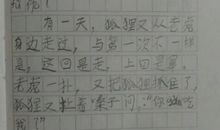 有一天，狐狸又从老虎
身边走过，与第一次不一样
是，这回是走，上回是拿。
老虎一扑，又把狐狸抓住了，
狐狸又扯着嗓子问：“你敢吃
我？”